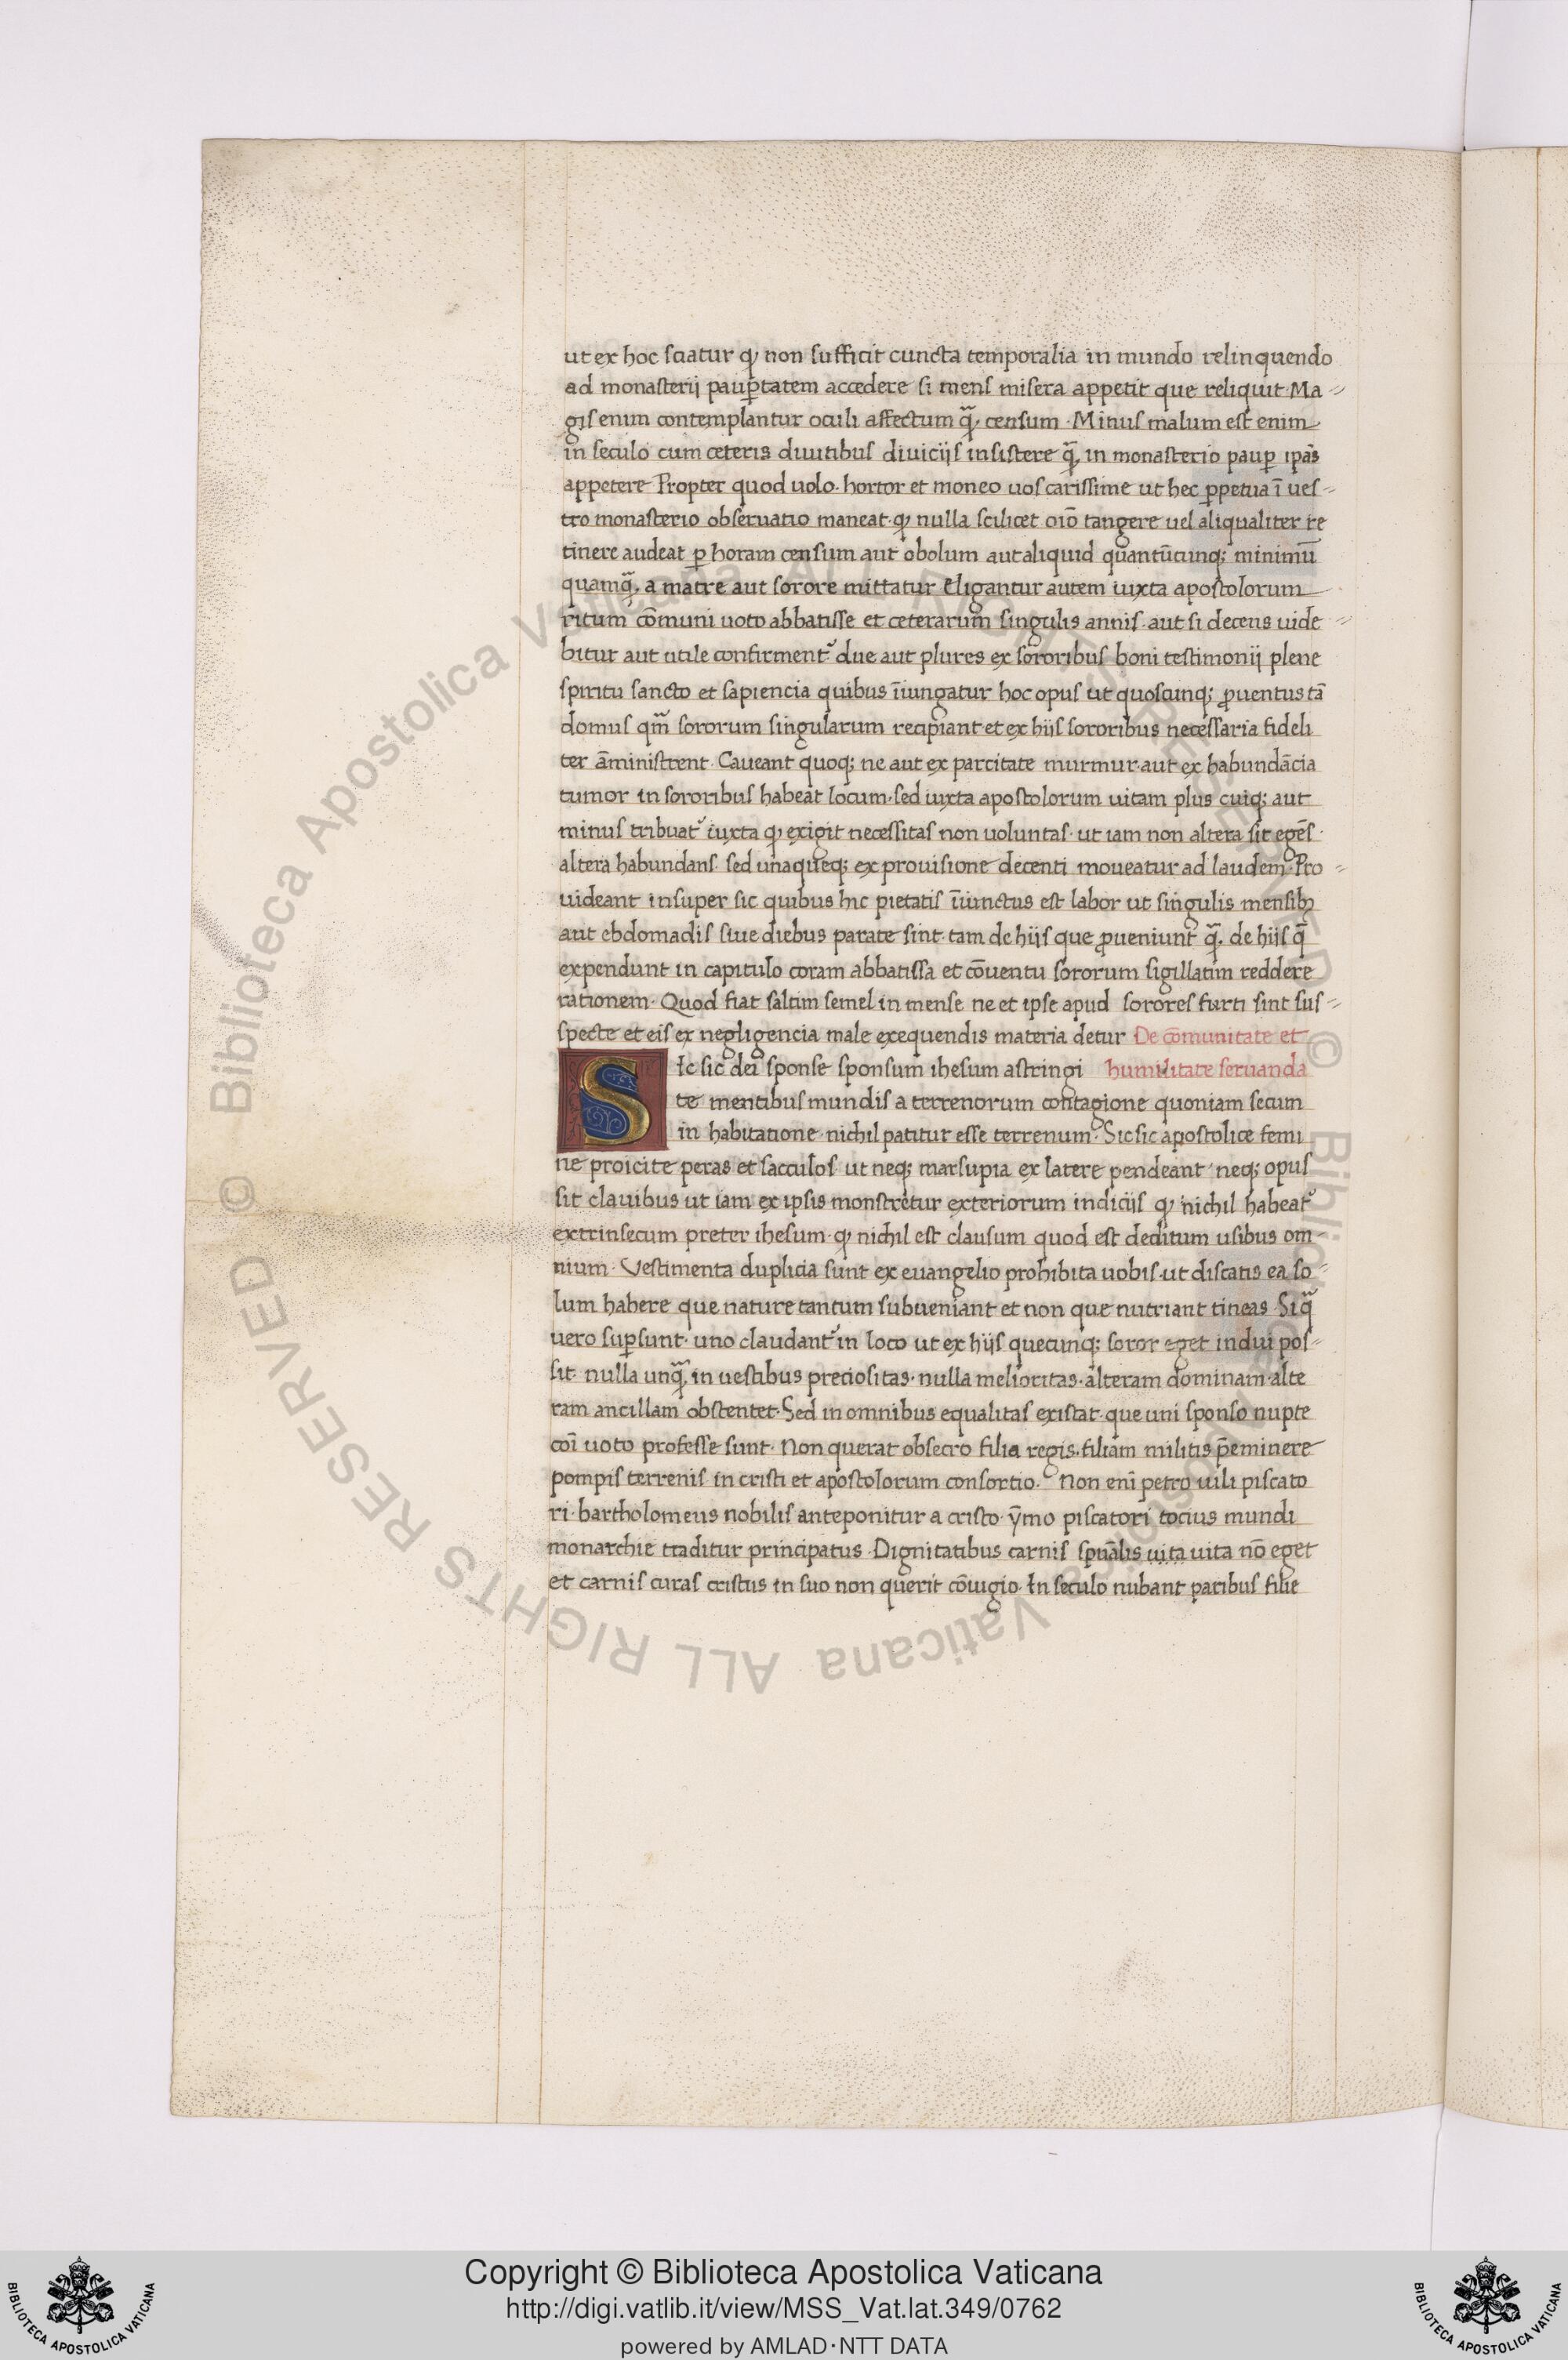 ut ex hoc sciatur ꝙ non sufficit cuncta temporalia in mundo relinquendo
ad monasterij paup̲tatem accedere si mens misera appetit que reliquit. Ma-
gis enim contemplantur oculi affectum q̃ꝫ censum. Minus malum est enim
in seculo cum ceteris diuitibus diuicijs insistere q̃ꝫ in monasterio paup̲ ip̃as
appetere. Propter quod uolo. hortor et moneo uos carissime ut hec ꝑpetua ĩ ues-
tro monasterio obseruatio maneat. ꝙ nulla scilicet oiõ tangere uel aliqualiter re
tinere audeat ꝑ horam censum aut obolum aut aliquid quantũcunqꝫ minimũ
quamq̃ꝫ a matre aut sorore mittatur Eligantur autem iuxta apostolorum
ritum cõmuni uoto abbatisse et ceterarum singulis annis. aut si decens uide-
bitur aut utile confirment᷑ due aut plures ex sororibus boni testimonij plene
spiritu sancto et sapiencia quibus ĩiungatur hoc opus ut quoscunqꝫ ꝓuentus tã
domus qm̃ sororum singularum recipiant. et ex hijs sororibus necessaria fideli
ter ãministrent. Caueant quoqꝫ ne aut ex parcitate murmur. aut ex habundãcia
tumor in sororibus habeat locum. sed iuxta apostolorum uitam plus cuiqꝫ aut
minus tribuat᷑ iuxta ꝙ exigit necessitas non uoluntas. ut iam non altera sit egẽs.
altera habundans. sed unaqueqꝫ ex prouisione decenti moueatur ad laudem. Pro-
uideant insuper sic quibus hic pietatis ĩiunctus est labor ut singulis mensibꝫ
aut ebdomadis siue diebus parate sint. tam de hijs que ꝓueniunt q̃ꝫ de hijs q̃
expendunt in capitulo coram abbatissa et cõuentu sororum sigillatim reddere
rationem. Quod fiat saltim semel in mense ne et ipse apud sorores furti sint sus-
specte et eis ex negligencia male exequendis materia detur De cõmunitate et
Sic sic dei sponse sponsum ihesum astringi humilitate seruanda
te mentibus mundis a terrenorum contagione quoniam secum
in habitatione nichil patitur esse terrenum. Sic sic apostolice femi
ne proicite peras et sacculos ut neqꝫ marsupia ex latere pendeant. neqꝫ opus
sit clauibus ut iam ex ipsis monstretur exteriorum indicijs ꝙ nichil habeat᷑
extrinsecum preter ihesum. ꝙ nichil est clausum quod est deditum usibus om-
nium. Vestimenta duplicia sunt ex euangelio prohibita uobis. ut discatis ea so-
lum habere que nature tantum subueniant et non que nutriant tineas. Si q̃
uero sup̲sunt. uno claudant᷑ in loco ut ex hijs quecunqꝫ soror eget indui pos-
sit. nulla unq̃ꝫ in uestibus preciositas. nulla melioritas. alteram dominam. alte
ram ancillam obstentet. Sed in omnibus equalitas existat. que uni sponso nupte
coĩ uoto professe sunt. Non querat obsecro filia regis. filiam militis p̃eminere
pompis terrenis in cristi et apostolorum consortio. Non eni᷑ petro uili piscato
ri. bartholomeus nobilis anteponitur a cristo. ỹmo piscatori tocius mundi
monarchie traditur principatus. Dignitatibus carnis spũalis uita uita nõ eget
et carnis curas cristus in suo non querit cõiugio. In seculo nubant paribus filie
© Biblioteca Apostolica Vaticana ALL RIGHTS RESERVED © Biblioteca Apostolica Vaticana ALL RIGHTS RESERVED
Copyright © Biblioteca Apostolica Vaticana
http://digi.vatlib.it/view/MSS_Vat.lat.349/0762
powered by AMLAD·NTT DATA
BIBLIOTECA APOSTOLICA VATICANA
BIBLIOTECA APOSTOLICA VATICANA